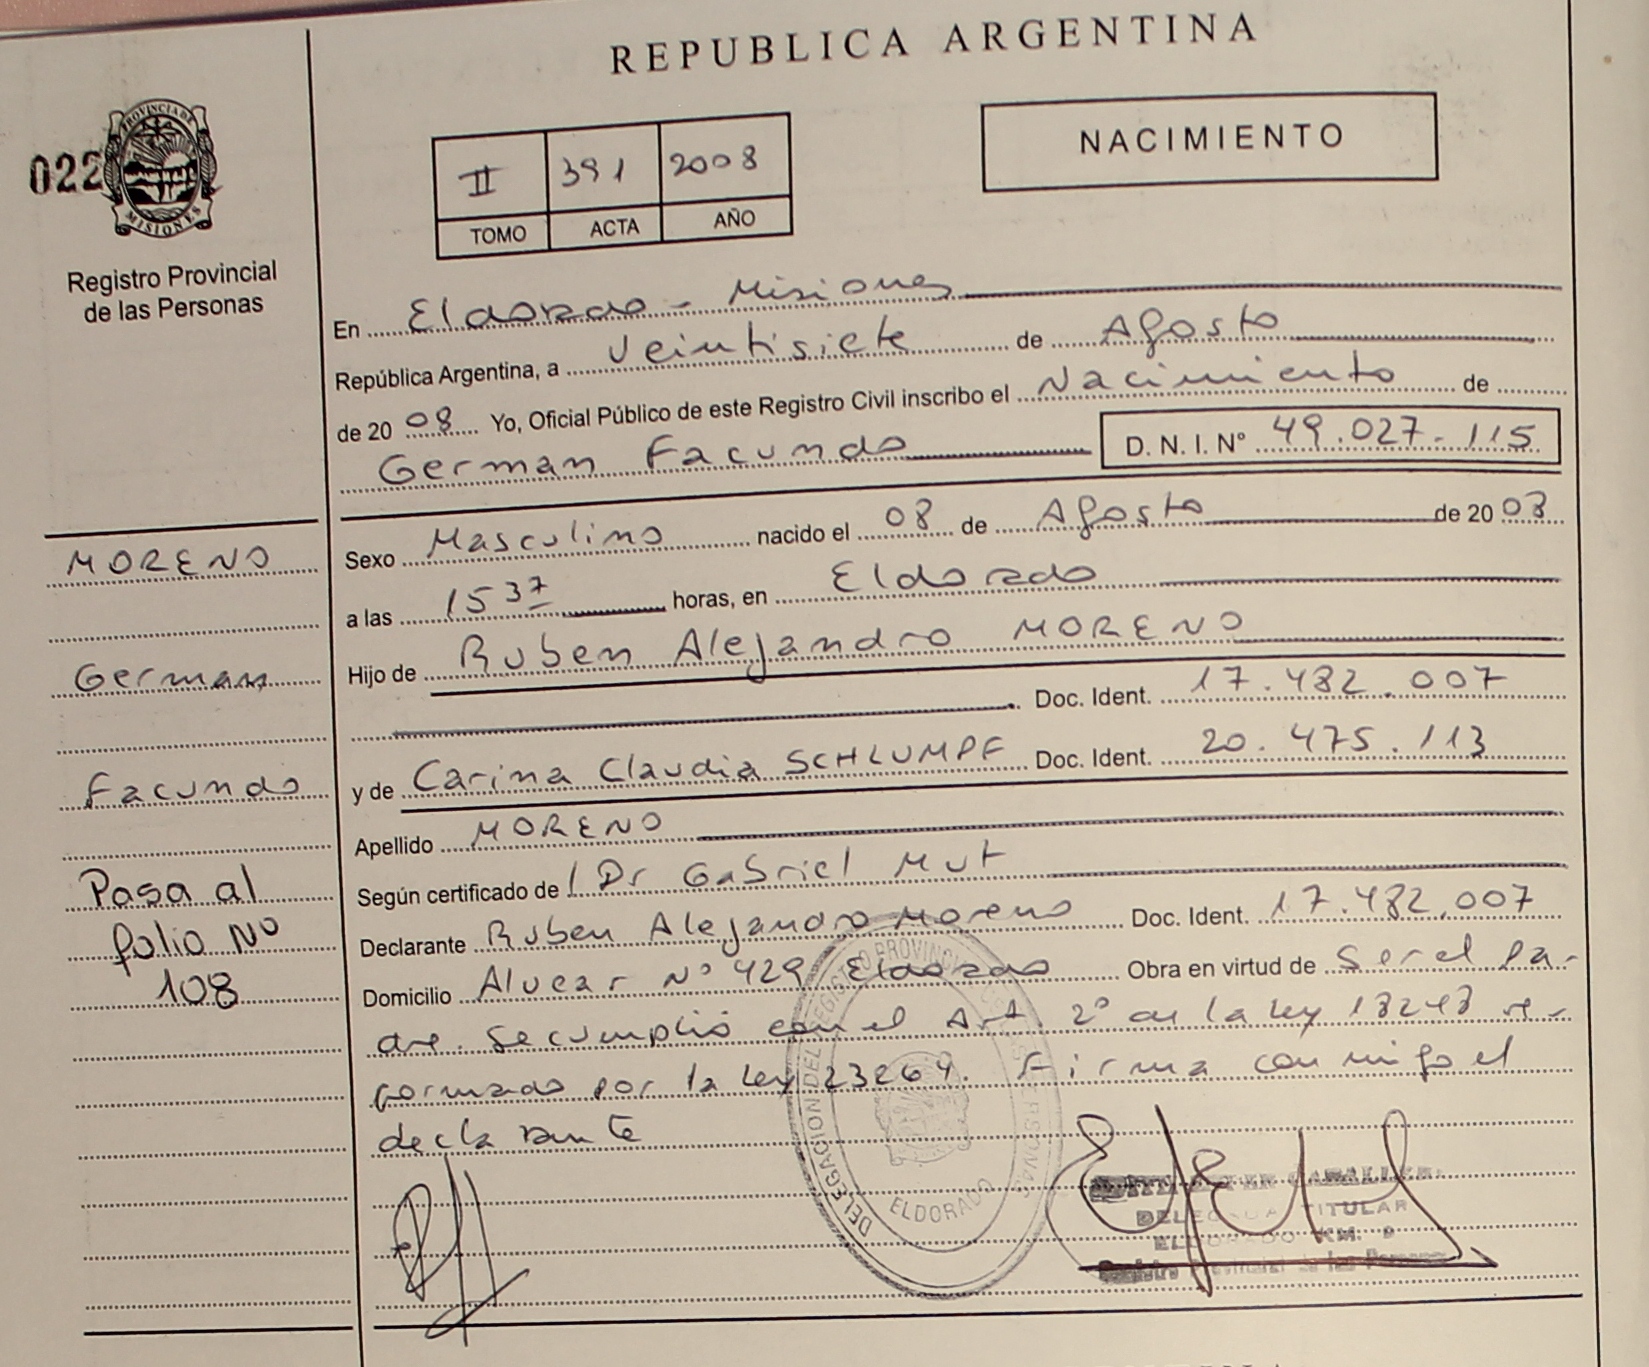 REPUBLICA ARGENTINA
022
PROVINCIA DE
MISIONES
Registro Provincial
de las Personas
NACIMIENTO
II 391 2008
TOMO ACTA AÑO
En Eldorado - Misiones
República Argentina, a Veintisiete de Agosto
de 20 08 Yo, Oficial Público de este Registro Civil inscribo el Nacimiento de
German Facundo D. N. I. Nº 49.027.115
Sexo Masculino nacido el 08 de Agosto de 20 08
a las 15 37 horas, en Eldorado
Hijo de Ruben Alejandro MORENO
Doc. Ident. 17.482.007
y de Carina Claudia SCHLUMPF Doc. Ident. 20.475.113
Apellido MORENO
Según certificado de l Dr Gabriel Mut
Declarante Ruben Alejandro Moreno Doc. Ident. 17.482.007
Domicilio Alvear Nº 429 Eldorado Obra en virtud de Ser el Pa-
dre. Se cumplió con el Art. 2º de la Ley 18248 re-
formado por la Ley 23264. Firma conmigo el
declarante
MORENO
German
Facundo
Pasa al
folio Nº
108
DELEGACION DEL REGISTRO PROVINCIAL
ELDORADO
CABALLER
TITULAR
ELDORADO KM. 9
Registro Provincial de las Personas